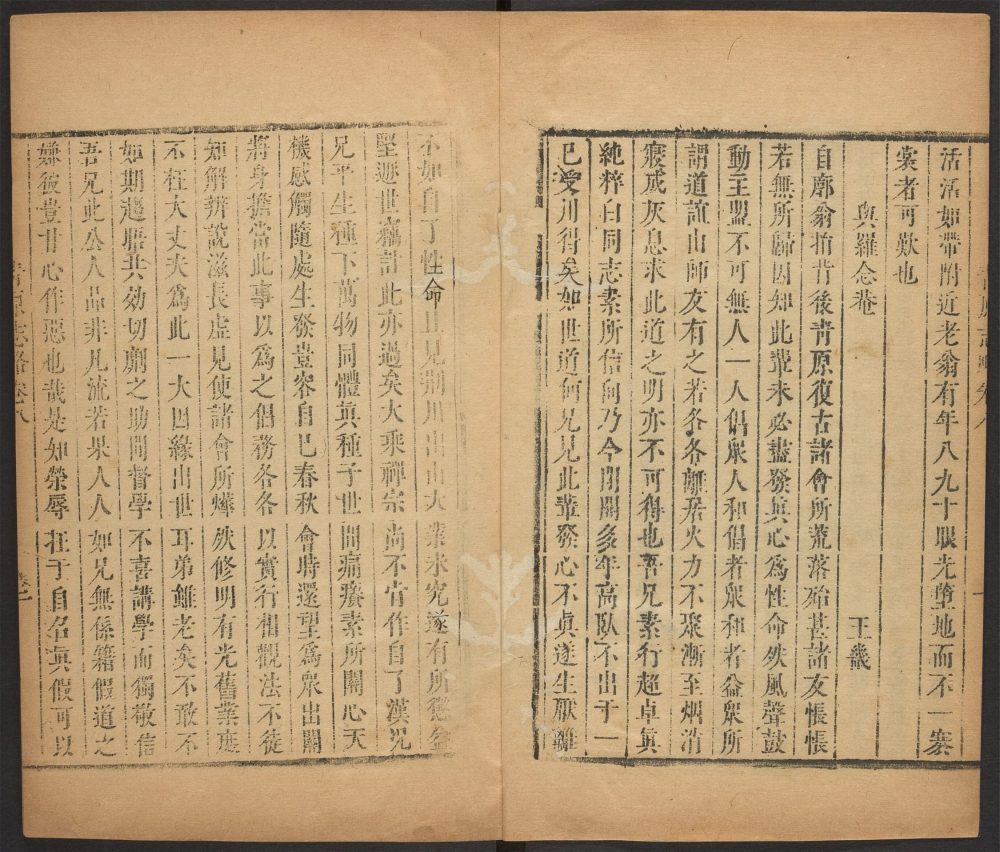 活活如帶附近老翁有年八九十眼光墮地而不一褰
裳者可歎也
與羅念菴
王畿
自廓翁捐背後靑原復古諸會所荒落殆甚諸友悵悵
若無所歸因知此輩未必盡發眞心爲性命然風聲鼓
動主盟不可無人一人倡衆人和倡者衆和者益衆所
謂道誼由師友有之若各各離居火力不聚漸至烟消
寢成灰息求此道之明亦不可得也吾兄素行超卓眞
純粹白同志素所信向乃今閉關多年高臥不出于一
己受用得矣如世道何兄見此輩發心不眞遂生厭離
不如自了性命且見荊川出山大業未究遂有所懲益
堅遯世之計此亦過矣大乘禪宗尚不肯作自了漢况
兄平生種下萬物同體眞種子世間痛癢素所關心天
機感觸隨處生發豈容自已春秋會時還望爲衆出關
將身擔當此事以爲之倡務各各以實行相觀法不徒
知解辨說滋長虛見使諸會所燁然修明有光舊業庶
不枉大丈夫爲此一大因緣出世耳弟雖老矣不敢不
如期趨晤共効切劘之助間督學不喜講學而獨敬信
吾兄此公人品非凡流若果人人如兄無係籍假道之
嫌彼豈甘心作惡也哉是如榮辱在于自名眞假可以
靑原志畧卷八